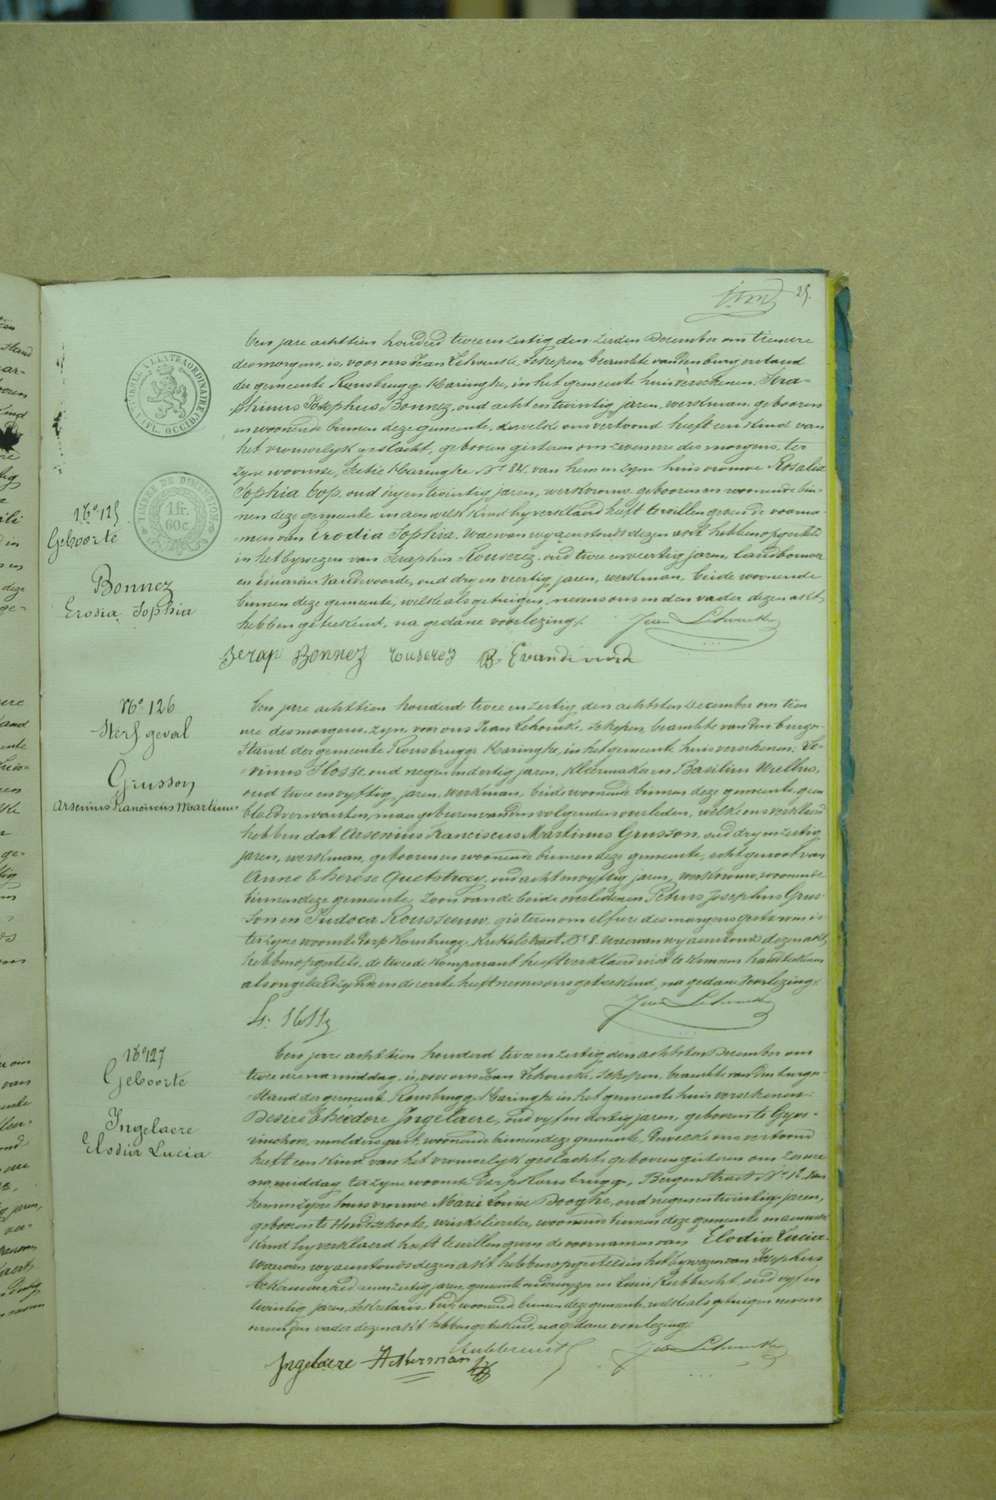 25.
TIMBRE DE DIMENSION
1 fr.
60 c.
N° 125
Geboorte
Bonnez
Erodia Sophia
Een jare achttien honderd twee en zestig den zesden December om tien ure
des morgens, is, voor ons Jean Lehoucke, schepen, beambte van den burgerstand
der gemeente Rousbrugge Haringhe, in het gemeente huis verschenen Sera-
phinus Josephus Bonnez, oud acht en twintig jaren, werkman, geboren
en woonende binnen deze gemeente, dewelke ons vertoond heeft een kind van
het vrouwelyk geslacht, geboren gisteren om zeven ure des morgens, ter
zyne woonste, Sectie Haringhe N° 84, van hem en zyne huisvrouwe Rosalia
Sophia Cop, oud dry en twintig jaren, werkvrouw, geboren en woonende bin-
nen deze gemeente en aen welk kind hy verklaerd heeft te willen geven de voorna-
men van Erodia Sophia. Waervan wy aenstonds dezen akt hebben opgesteld
in het bywezen van Seraphin Rouserez, oud twee en veertig jaren, landbouwer
en Evarist Vandevoorde, oud dry en veertig jaren, werkman, beide woonende
binnen deze gemeente, welke als getuigen, nevens ons en den vader dezen akt,
hebben geteekend, na gedane voorlezing.
Serap Bonnez Rouserez B. E vandevoorde
N° 126
Sterfgeval
Grusson
Arsenius Franciscus Martinus
Een jare achttien honderd twee en zestig den achtsten December om tien
ure des morgens, zyn, voor ons Jean Lehoucke, schepen, beambte van den burger-
stand der gemeente Rousbrugge Haringhe, in het gemeente huis verschenen: Le-
vinus Flosse, oud negen en dertig jaren, kleermaker en Basilius
oud twee en vyftig jaren, werkman, beide woonende binnen deze gemeente, geen
bloedverwanten, maer geburen van den volgenden overleden, welke ons verklaerd
hebben dat Arsenius Franciscus Martinus Grusson, oud dry en zestig
jaren, werkman, geboren en woonende binnen deze gemeente, echtgenoot van
Anne Thérèse Quetstroey, oud acht en vyftig jaren, werkvrouw, woonende
binnen deze gemeente, zoon van de beide overledenen Petrus Josephus Grus-
son en Judoca Rousseeuw, gisteren om elf ure des morgens gestorven is
ter zyne woonste dorp Rousbrugge, Kerkstraet, N° 8. Waervan wy aenstonds dezen akt
hebben opgesteld, de tweede komparant heeft verklaerd niet te kunnen handteekenen
als ongeleerd zynde en de eerste heeft nevens ons geteekend, na gedane voorlezing.
N° 127
Geboorte
Ingelaere
Elodia Lucia
Een jare achttien honderd twee en zestig den achtsten December om
twee ure namiddag, is, voor ons Jean Lehoucke, schepen, beambte van den burger-
stand der gemeente Rousbrugge Haringhe in het gemeente huis verschenen:
Desiré Théodore Ingelaere, oud vyf en dertig jaren, geboren te Gyve-
rinchove, woonende binnen deze gemeente, dewelke ons vertoond
heeft een kind van het vrouwelyk geslacht, geboren gisteren om zes ure
namiddag, ter zyne woonste dorp Rousbrugge, Bergenstraet N° 12, van
hem en zyne huisvrouwe Marie Louise Dooghe, oud negen en twintig jaren,
geboren te Hondschoote, winkelierster, woonende binnen deze gemeente en aen welk
kind hy verklaerd heeft te willen geven de voornamen van Elodia Lucia.
Waervan wy aenstonds dezen akt hebben opgesteld in het bywezen van Josephus
Ackerman, een en zestig jaren, gemeente onderwyzer en Louis Rubbrecht, oud vyf en
twintig jaren, sekretaris, beide woonende binnen deze gemeente, welke als getuigen nevens
ons en den vader dezen akt hebben geteekend, na gedane voorlezing.
Ingelaere Ackerman Rubbrecht